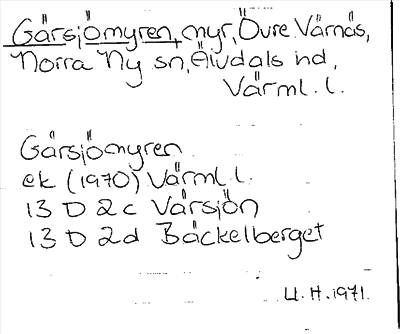 Gårsjömyren, myr, Övre Värnäs,
Norra Ny sn, Älvdals hd,
Värml. l.
Gårsjömyren
ek (1970) Värml. l.
13 D 2c Vårsjön
13 D 2d Bäckelberget
U.H. 1971.